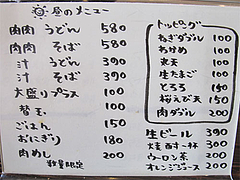 昼のメニュー
肉肉うどん 580
肉肉そば 580
汁うどん 390
汁そば 390
大盛りプラス 100
替玉 100
ごはん 150
おにぎり 180
肉めし 200
数量限定
トッピング
ねぎダブル 100
わかめ 100
丸天 100
生たまご 100
とろろ 150
桜えび天 150
肉ダブル 200
生ビール 390
焼酎一杯 300
ウーロン茶 200
オレンジジュース 200